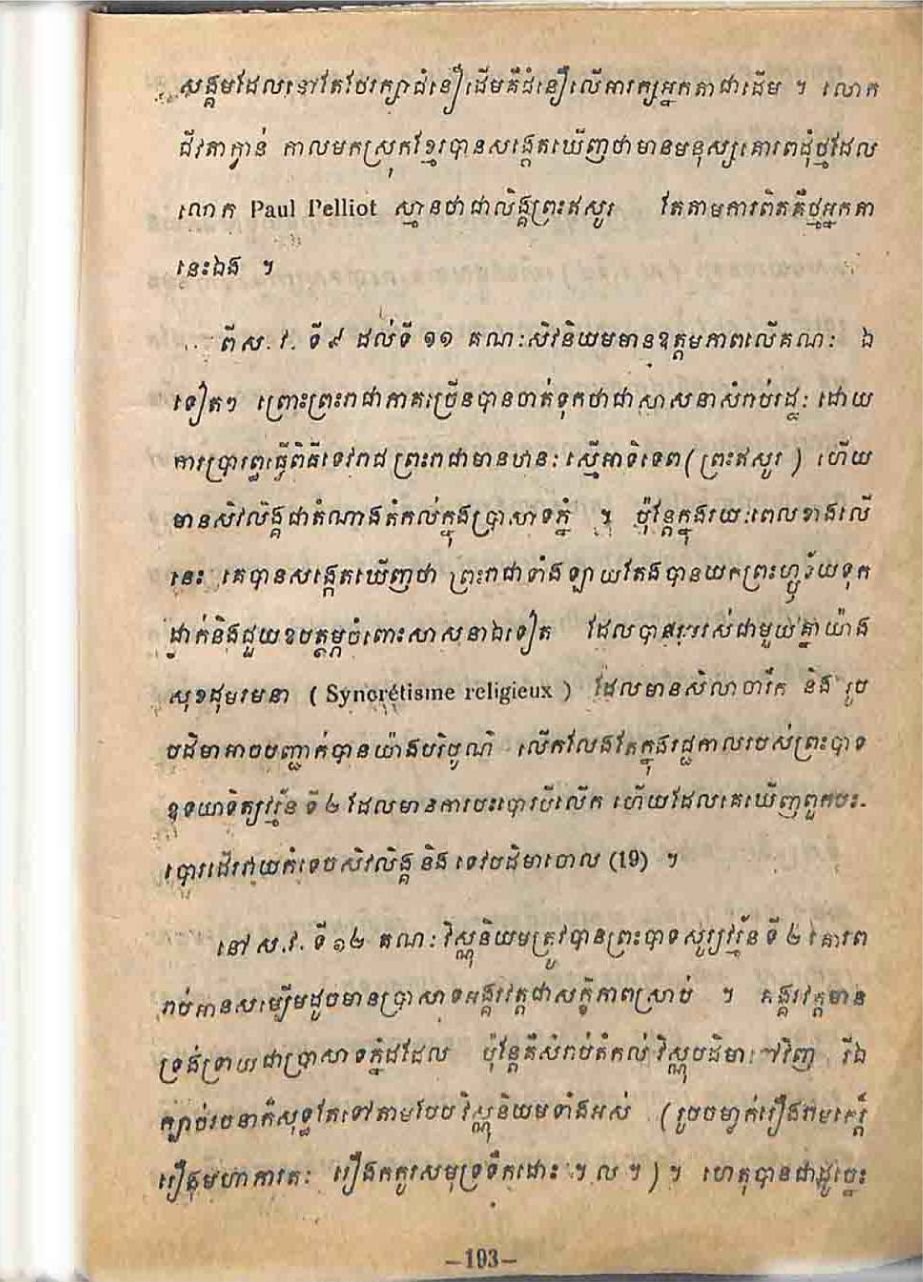 សង្គមដែលនៅតែថែរក្សាជំនឿដើមគឺជំនឿលើអារក្សអ្នកតាជាដើម ។ លោក
ជីវតាក្វាន់ កាលមកស្រុកខ្មែរបានសង្កេតឃើញថាមានមនុស្សគោរពដុំថ្មដែល
លោក Paul Pelliot ស្មានថាជាលិង្គព្រះឥសូរ តែតាមការពិតគឺថ្មអ្នកតា
នេះឯង ។
ពីស.វ. ទី៩ ដល់ទី ១១ គណៈសិវនិយមមានឧត្តមភាពលើគណៈ ឯ
ទៀតៗ ព្រោះព្រះរាជាភាគច្រើនបានចាត់ទុកថាជាសាសនាសំរាប់រដ្ឋៈ ដោយ
ការប្រារព្ធធ្វើពិធីទេវរាជ ព្រះរាជាមានឋានៈស្មើអាទិទេព ( ព្រះឥសូរ ) ហើយ
មានសិវលិង្គជាតំណាងតំកល់ក្នុងប្រាសាទភ្នំ ។ ប៉ុន្តែក្នុងរយៈពេលខាងលើ
នេះ គេបានសង្កេតឃើញថា ព្រះរាជាទាំងឡាយតែងបានយកព្រះហ្ឫទ័យទុក
ដាក់និងជួយឧបត្ថម្ភចំពោះសាសនាឯទៀត ដែលបាន រស់ជាមួយគ្នាយ៉ាង
សុខដុមរមនា ( Syncrétisme religieux ) ដែលមានសិលាចារឹក និង រូប
បដិមាអាចបញ្ជាក់បានយ៉ាងបរិបូណ៌ លើកលែងតែក្នុងរជ្ជកាលរបស់ព្រះបាទ
ឧទយាទិត្យវរ្ម័ន ទី ២ ដែលមានការបះបោរបីលើក ហើយដែលគេឃើញពួកបះ-
បោរដើរវាយកំទេចសិវលិង្គ និង ទេវបដិមាចោល (19) ។
នៅ ស.វ. ទី ១២ គណៈវិស្ណុនិយមត្រូវបានព្រះបាទសូរ្យវរ្ម័ន ទី ២ គោរព
រាប់អានសម្បើមដូចមានប្រាសាទអង្គរវត្តជាសក្ខីភាពស្រាប់ ។ អង្គរវត្តមាន
ទ្រង់ទ្រាយជាប្រាសាទភ្នំដដែល ប៉ុន្តែគឺសំរាប់តំកល់វិស្ណុបដិមាទៅវិញ រីឯ
ក្បាច់រចនាក៏សុទ្ធតែទៅតាមបែបវិស្ណុនិយមទាំងអស់ ( រូបចម្លាក់រឿងរាមកេរ្តិ៍
រឿងមហាភារតៈ រឿងកកូរសមុទ្រទឹកដោះ ។ ល ។ ) ។ ហេតុបានជាដូច្នេះ
-193-